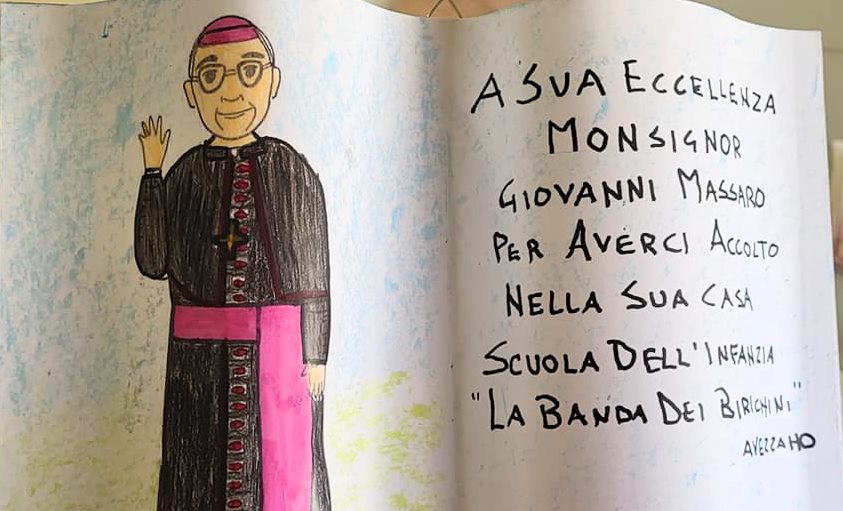 A SUA ECCELLENZA
MONSIGNOR
GIOVANNI MASSARO
PER AVERCI ACCOLTO
NELLA SUA CASA
SCUOLA DELL'INFANZIA
"LA BANDA DEI BIRICHINI"
AVEZZANO